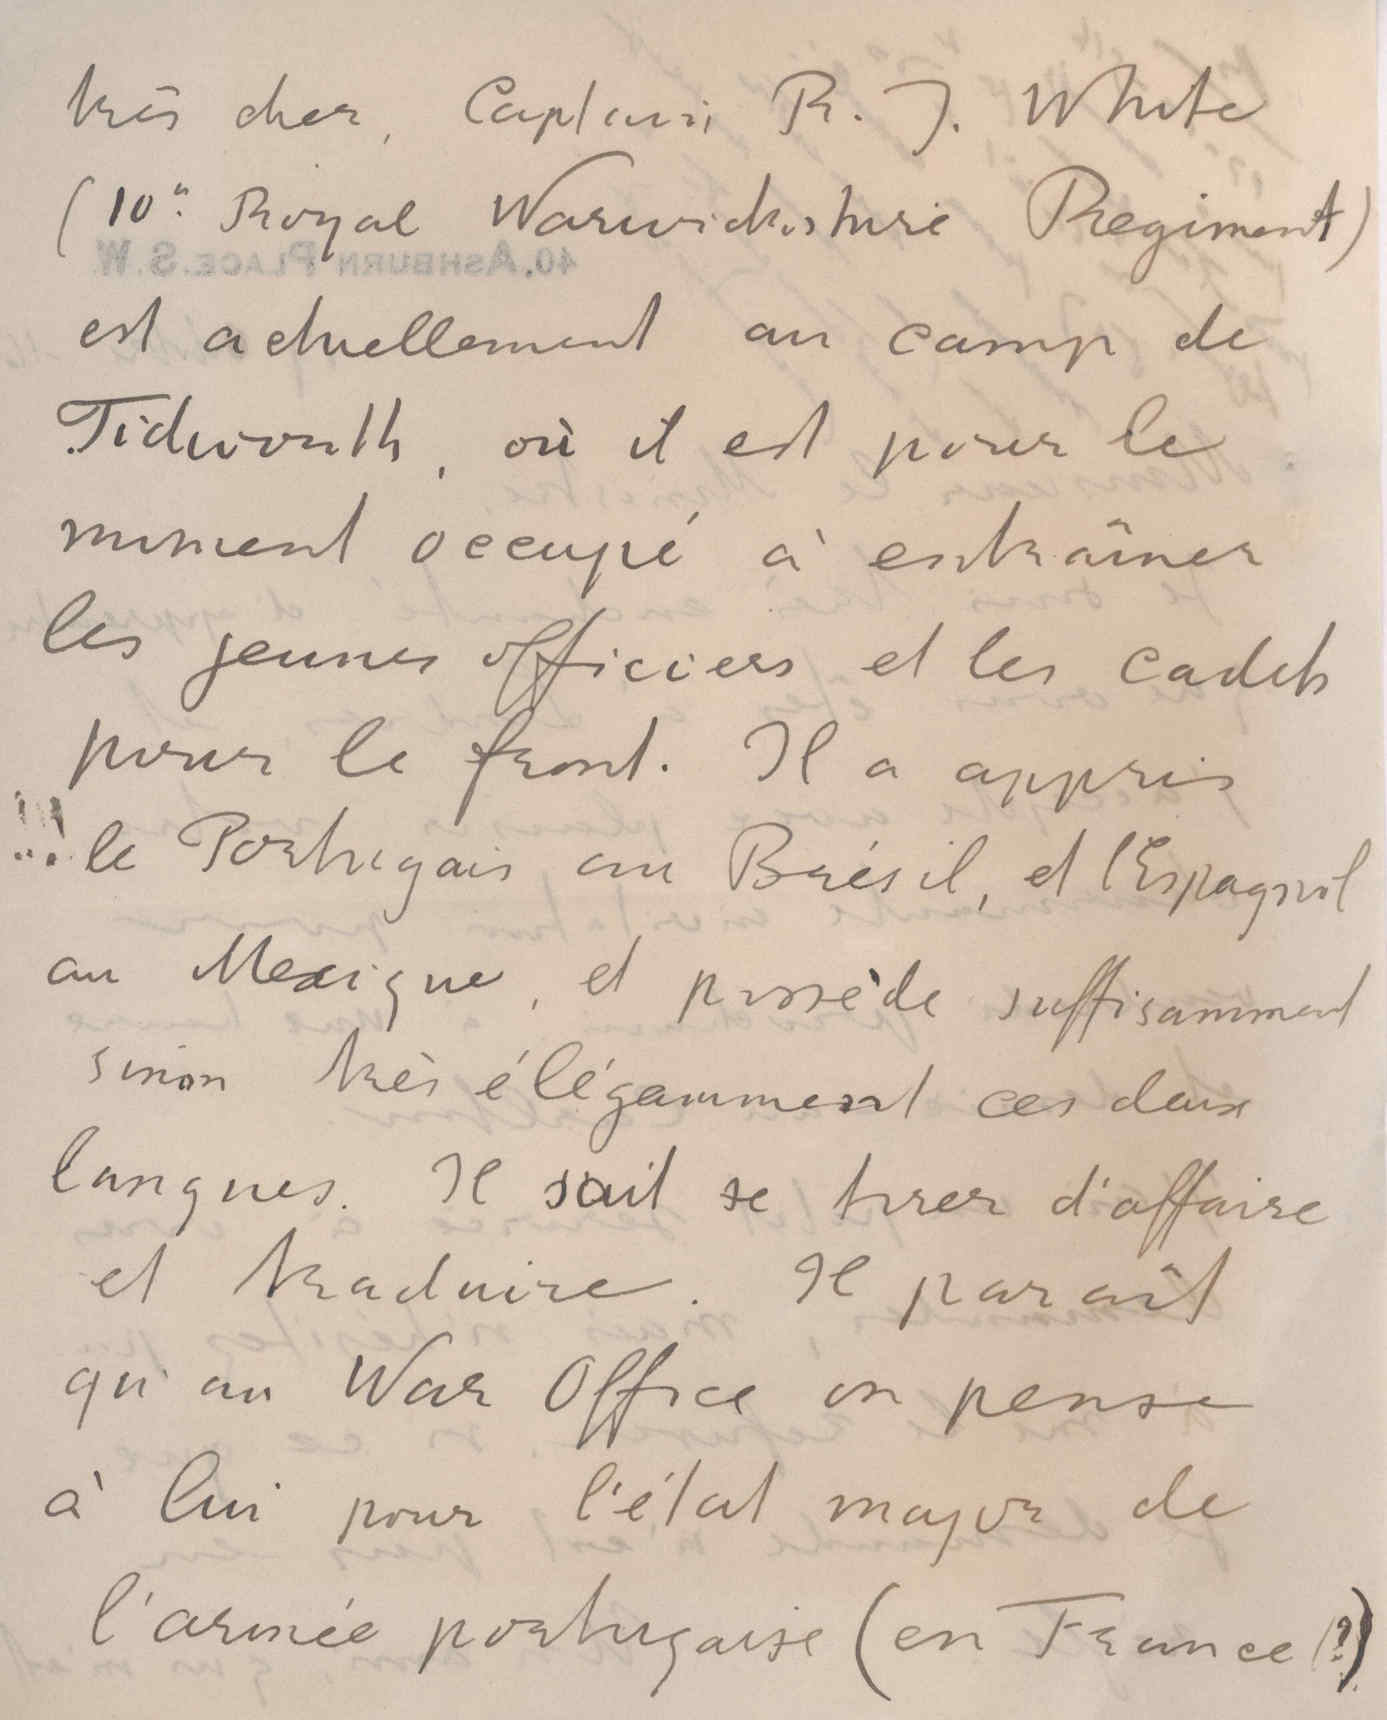 très cher, Captain R. J. White
(10" Royal Warwickshire Regiment)
40, ASHBURN PLACE. S.W.
est actuellement au camp de
Tidworth, où il est pour le
moment occupé à entraîner
les jeunes officiers et les cadets
pour le front. Il a appris
!!! le Portugais au Brésil, et l'Espagnol
au Mexique, et possède suffisamment
sinon très élégamment ces deux
langues. Il sait se tirer d'affaire
et traduire. Il paraît
qu'au War Office on pense
à lui pour l'état major de
l'armée portugaise (en France (?)